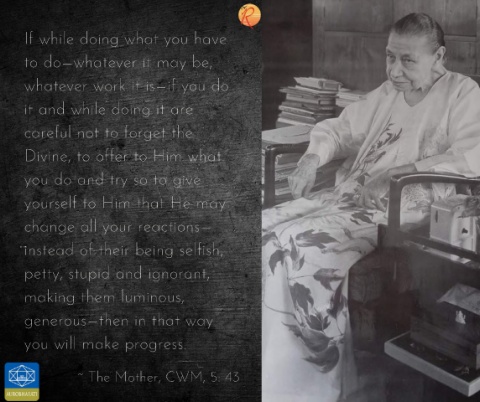 If while doing what you have
to do—whatever it may be,
whatever work it is—if you do
it and while doing it are
careful not to forget the
Divine, to offer to Him what
you do and try so to give
yourself to Him that He may
change all your reactions—
instead of their being selfish,
petty, stupid and ignorant,
making them luminous,
generous—then in that way
you will make progress.
~ The Mother, CWM, 5: 43
R